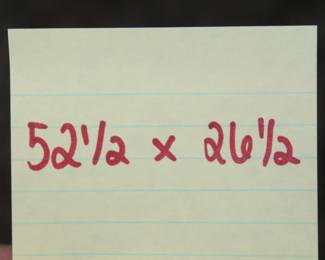 52 1/2 x 26 1/2